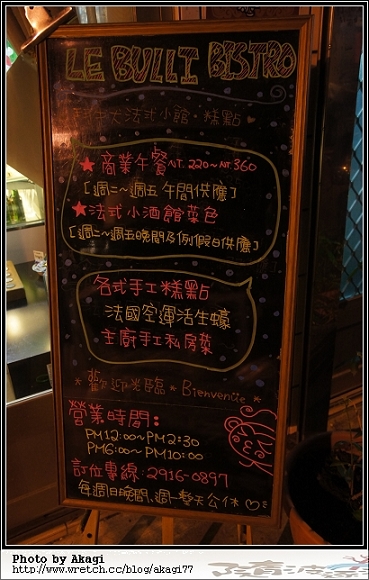 LE BULLI BISTRO
法式小館·糕點
★商業午餐 NT. 220~NT 360
[週二~週五 午間供應]
★法式小酒館菜色
[週二~週五晚間及例假日供應]
各式手工糕點
法國空運活生蠔
主廚手工私房菜
* 歡迎光臨 * Bienvenue *
營業時間:
PM12:00~PM2:30
PM6:00~PM10:00
訂位專線:2916-0897
每週日晚間、週一整天公休
Photo by Akagi
http://www.wretch.cc/blog/akagi77